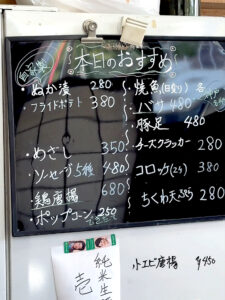 自家製
本日のおすすめ
・ぬか漬 280
・フライドポテト 380
・めざし 350
・ソーセージ5種 480
・鶏唐揚 680
・ポップコーン 250
・焼魚(日変り) 各
サバ 480
・豚足 480
・チーズクラッカー 280
・コロッケ(2ヶ) 380
・ちくわ天 280
小エビ唐揚 ¥450
純米生酒
壱